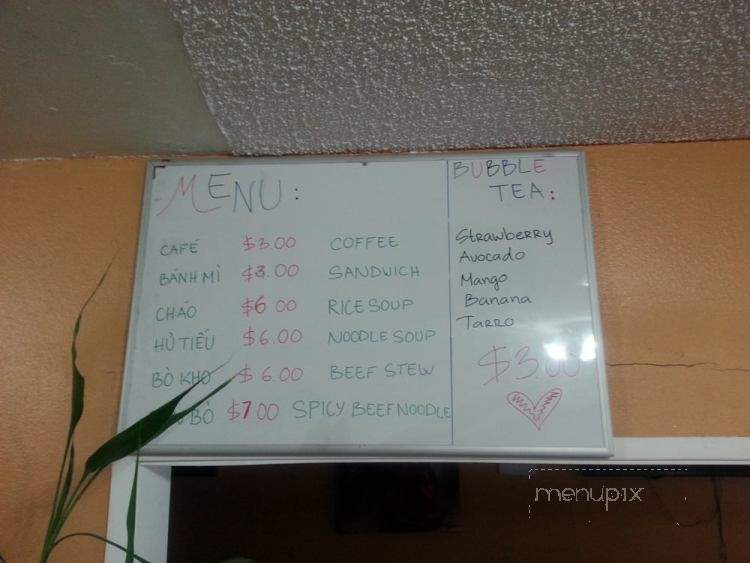 MENU:
CAFÉ $3.00 COFFEE
BÁNH MÌ $3.00 SANDWICH
CHÁO $6 00 RICE SOUP
HỦ TIẾU $6.00 NOODLE SOUP
BÒ KHO $6.00 BEEF STEW
BÒ $7.00 SPICY BEEF NOODLE
BUBBLE
TEA:
Strawberry
Avocado
Mango
Banana
Tarro
$3.00
menupix